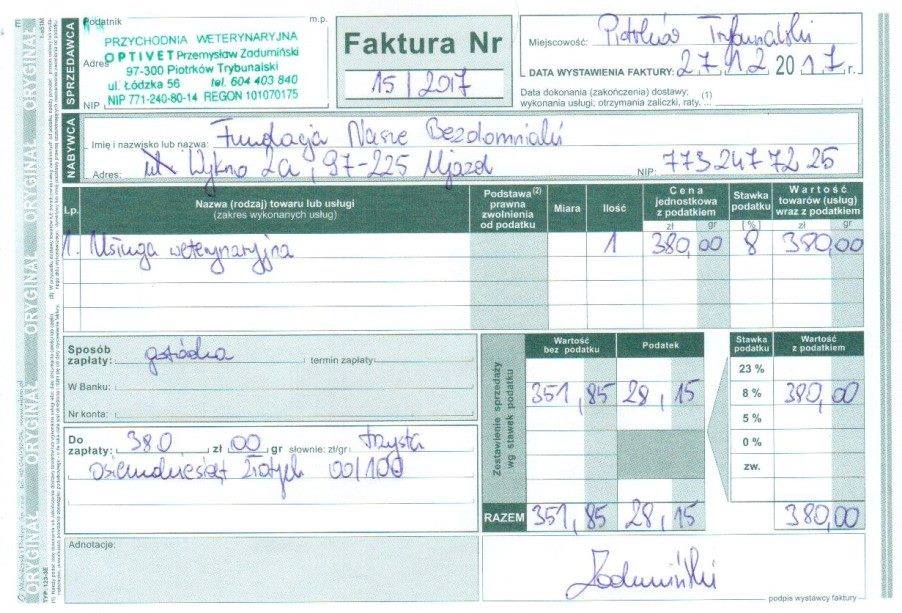 ORYGINAŁ ORYGINAŁ ORYGINAŁ ORYGINAŁ ORYGINAŁ ORYGINAŁ
SPRZEDAWCA
Podatnik
m.p.
PRZYCHODNIA WETERYNARYJNA
OPTIVET Przemysław Zadumiński
Adres
97-300 Piotrków Trybunalski
ul. Łódzka 56 tel. 604 403 840
NIP 771-240-80-14 REGON 101070175
NIP
Faktura Nr
15/2017
Miejscowość: Piotrków Trybunalski
DATA WYSTAWIENIA FAKTURY: 27 12 2017 r.
Data dokonania (zakończenia) dostawy; (1)
wykonania usługi; otrzymania zaliczki, raty, ...
NABYWCA
Imię i nazwisko lub nazwa: Fundacja Nasze Bezdomniaki
Adres: Wykno 2a, 97-225 Ujazd NIP: 773 247 72 25
Lp. Nazwa (rodzaj) towaru lub usługi (zakres wykonanych usług) Podstawa (2) prawna zwolnienia od podatku Miara Ilość Cena jednostkowa z podatkiem zł gr Stawka podatku [%] Wartość towarów (usług) wraz z podatkiem zł gr
1. Usługa weterynaryjna 1 380,00 8 380,00
Sposób zapłaty: gotówka termin zapłaty
W Banku:
Nr konta:
Do zapłaty: 380 zł 00 gr słownie: zł/gr trzysta
osiemdziesiąt złotych 00/100
Adnotacje:
Zestawienie sprzedaży wg stawek podatku
Wartość bez podatku Podatek Stawka podatku Wartość z podatkiem
23 %
351,85 28,15 8 % 380,00
5 %
0 %
zw.
RAZEM 351,85 28,15 380,00
Zadumiński
podpis wystawcy faktury